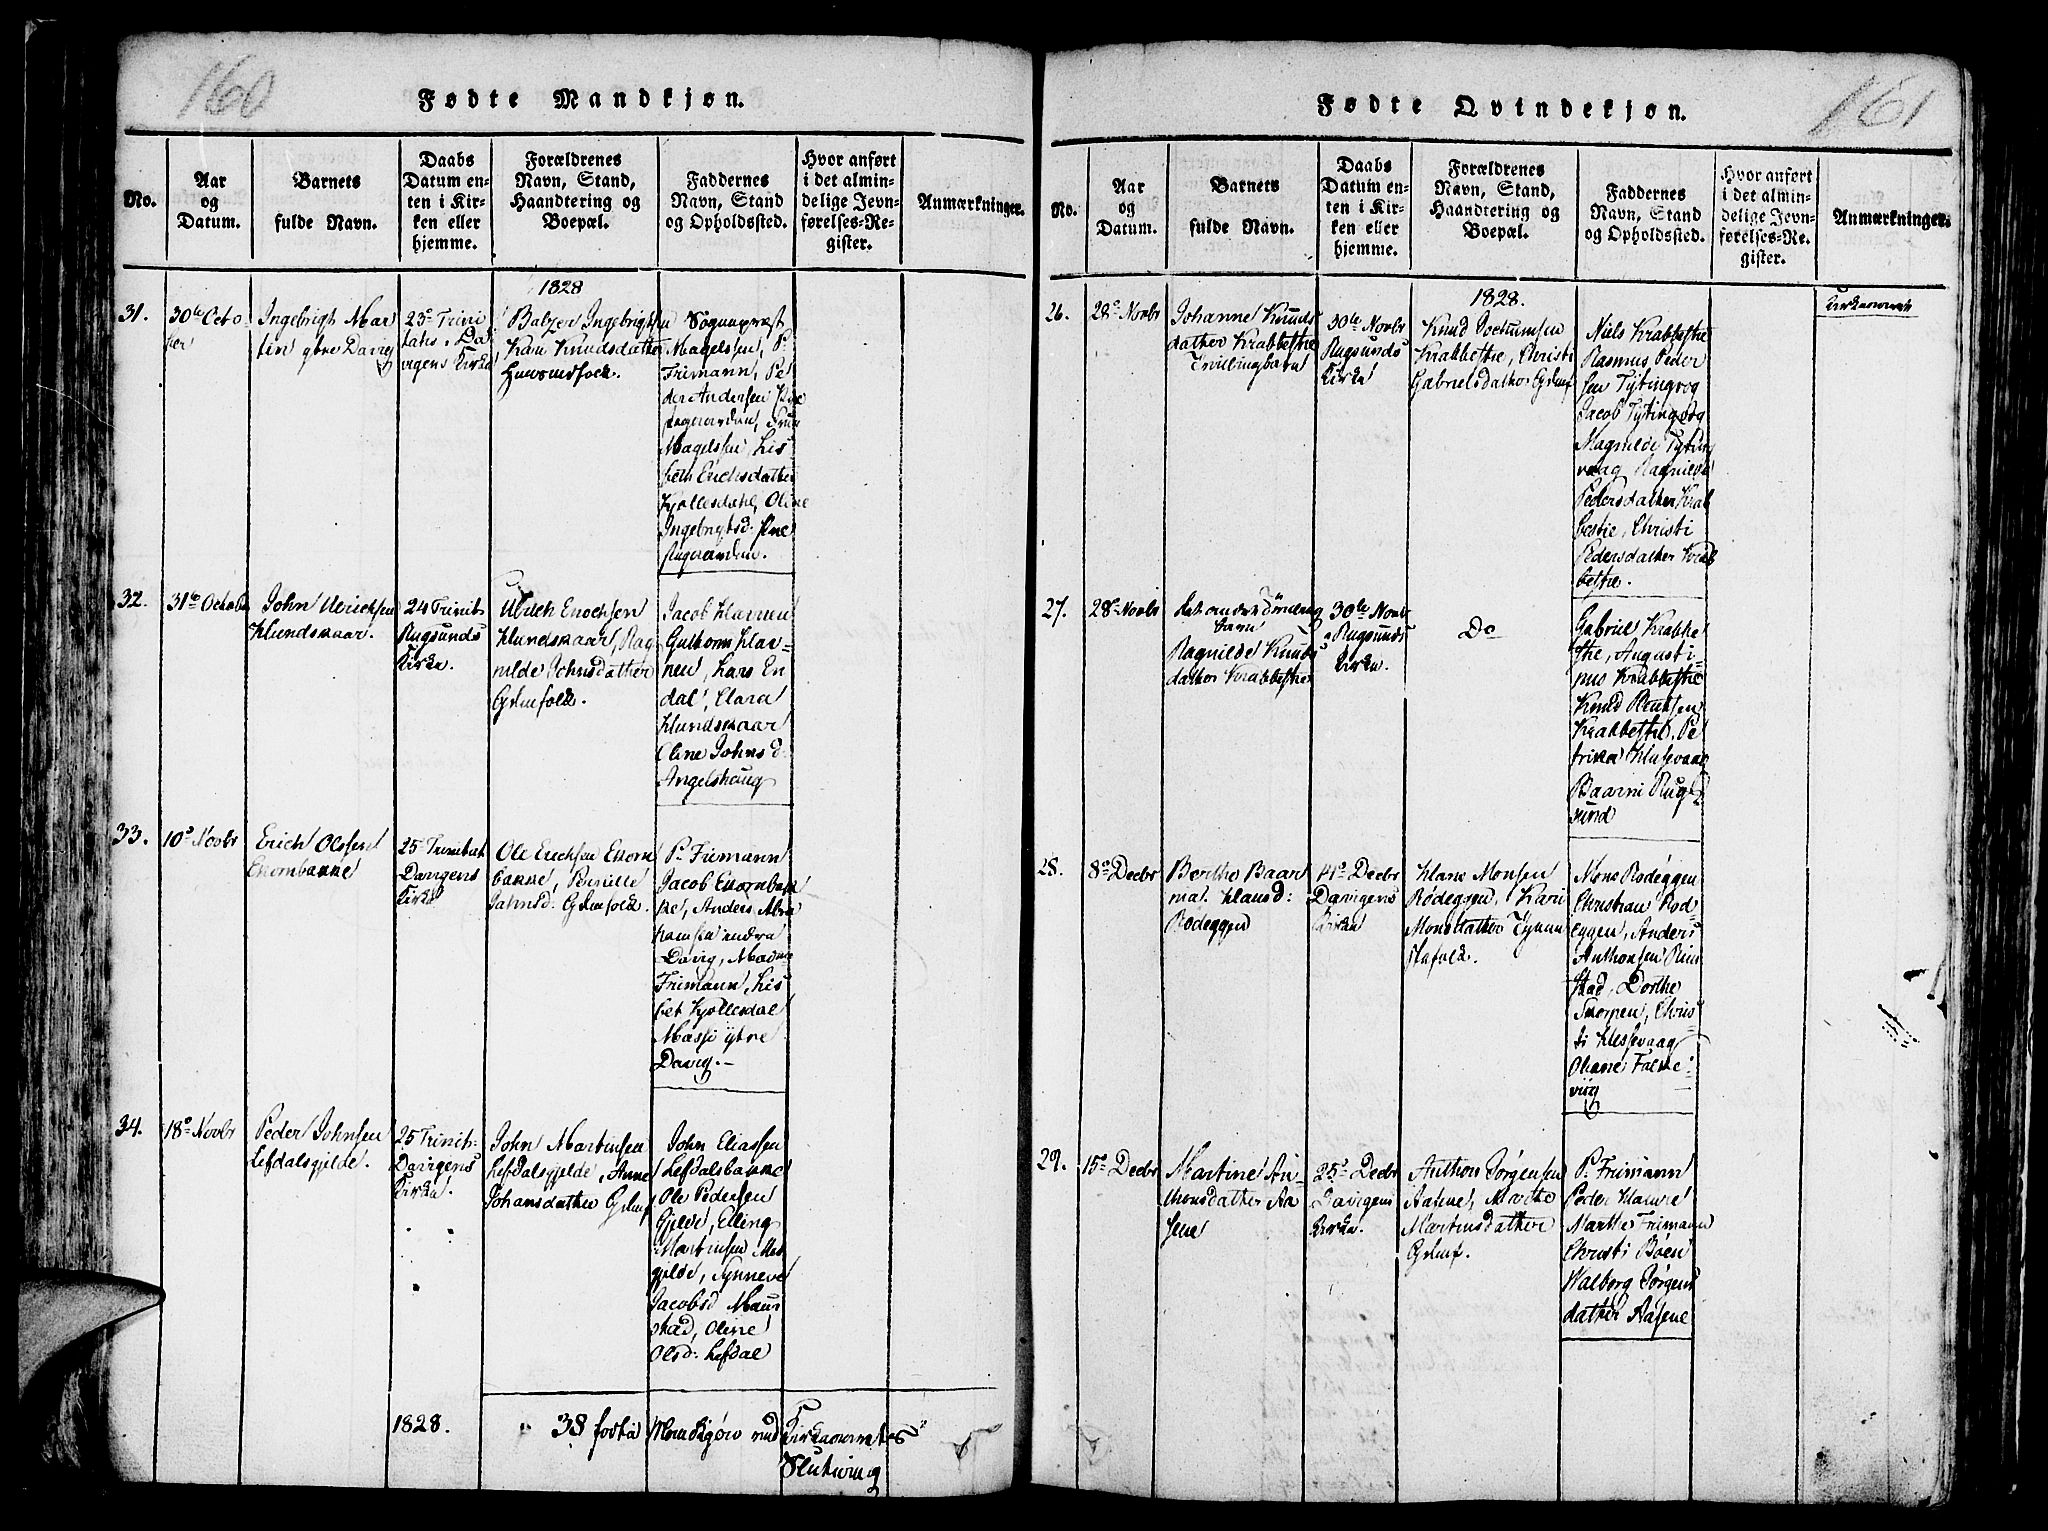 160
Fødte Mandkjøn.
No.
Aar
og
Datum.
Barnets
fulde Navn.
Daabs
Datum en-
ten i Kir-
ken eller
hjemme.
Forældrenes
Navn, Stand,
Haandtering og
Boepæl.
Faddernes
Navn, Stand
og Opholdssted.
Hvor anført
i det almin-
delige Jevn-
førelses-Re-
gister.
Anmærkninger.
1828
31.
30te Octo-
ber
Ingebrigt Mar
tin ytre Davig
23de Trini
tatis, Da
vigens Kirke
Balzer Ingebrigtsen
Kari Knudsdatter
Huusmdfolk.
Sognepræst
Magelssen, P.
Frimann, Pe
der Andersen
Frue
Magelssen, Lis
beth Erichsdatter
Kjøllesdahl, Oline
Ingebrigtsd.
32.
31te October
John Ulrichsen
Hundskaar.
24 Trinit.
Rugsunds
Kirke.
Ulrich Enochsen
Hundskaar, Rag
nilde Johnsdatter
Gaardmfolk.
Jacob Havnen
Guthorm Hav-
nen, Lars En
dal, Clara
Hundskaar
Oline Johnsd.
Angelshaug
33.
10de Novbr
Erich Olssen
Ekornbakke
25de Trinitat.
Davigens
Kirke
Ole Erichsen Ekorn
bakke, Pernille
Jahnsd: Gdmfolk.
P. Frimann
Jacob Ekornbak
ke, Anders Abra
hamsen indre
Davig, Madme
Frimann, Lis
bet Kjøllesdal
Massi ytre
Davig.
34.
18de Novbr
Peder Johnsen
Lefdalsgjelde.
25 Trinit.
Davigens
Kirke.
John Martinsen
Lefdalsgjelde, Anne
Johansdatter Gdmf.
John Eliassen
Lefdalsbakke
Ole Pedersen
Gjelde, Elling
Martinsen
gjelde, Synneve
Jacobsd Maur
stad, Oline
Olsd: Lefdal
1828.
38 fødte Mandkjøn ved Kirkeaarets
Slutning
161
Fødte Qvindekjøn.
No.
Aar
og
Datum.
Barnets
fulde Navn.
Daabs
Datum en-
ten i Kir-
ken eller
hjemme.
Forældrenes
Navn, Stand,
Haandtering og
Boepæl.
Faddernes
Navn, Stand
og Opholdssted.
Hvor anført
i det almin-
delige Jevn-
førelses-Re.
gister.
Anmærkninger.
1828.
26.
28de Novbr
Johanne Knuds
datter Krabbestie
Tvillingbarn
30te Novbr
Rugsunds
Kirke
Knud Jochumsen
Krabbestie, Christi
Gabrielsdatter Gdmf
Niels Krabbestie
Rasmus Peder
sen Tytingvog
Jacob Tytingvog
Magnilde Tyting
vaag, Ragnilde
Pedersdatter Krab
bestie, Christi
Pedersdatter Krab
bestie.
27.
28de Novbr
det andet
barn
Ragnilde Knuds
datter Krabbestie
30te Novbr
Rugsunds
Kirke.
Do
Gabriel Krabbe
stie, Augusti-
nus Krabbestie
Knud
Krabbestie, Pe
trikka Husevaag
Baarni Rug
sund
28.
8de Decbr
Berthe Baar
Hansd:
Rødeggen
14de Decbr
Davigens
Kirke
Hans Monsen
Rødeggen, Kari
Monsdatter
Mons Rødeggen
Christian Rød-
eggen, Anders
Anthonsen Rim
stad, Dorthe
Skorpen, Chris
ti Hessevaag
Oliane Falke-
viig
29.
15de Decbr
Martine An-
thonsdatter Aa
sene
25de Decbr
Davigens
Kirke.
Anthon Jørgensen
Aasene, Marthe
Martinsdatter
Gdmf.
P. Frimann
Peder
Marthe Frimann
Christi Bøen
Walborg Jørgens
datter Aasene